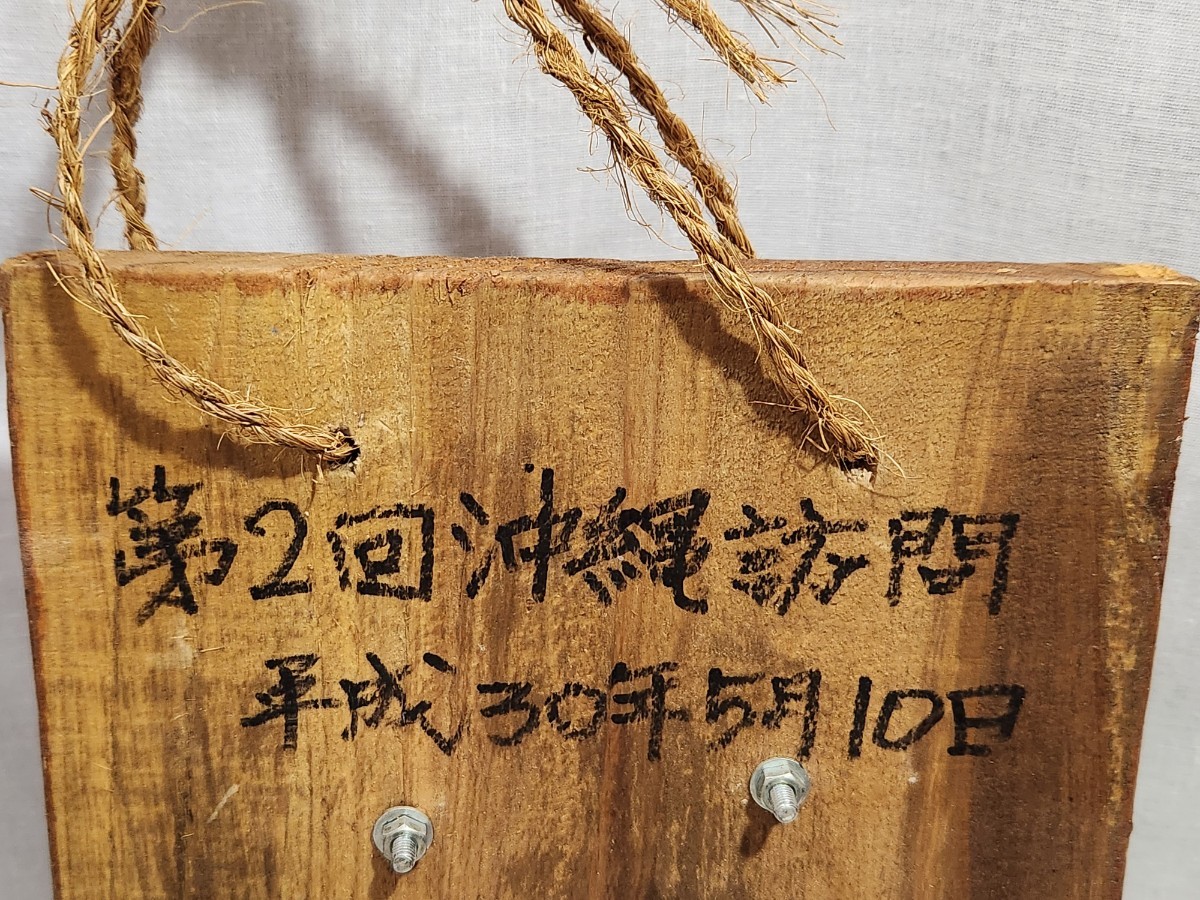 第2回沖縄訪問
平成30年5月10日